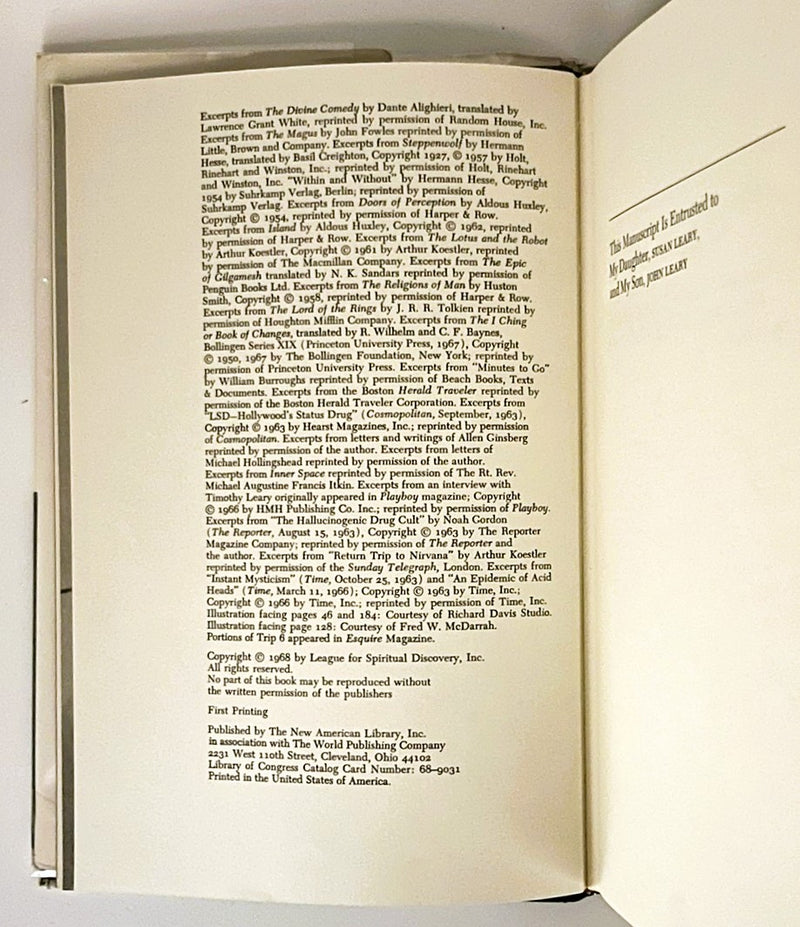 Excerpts from The Divine Comedy by Dante Alighieri, translated by
Lawrence Grant White, reprinted by permission of Random House, Inc.
Excerpts from The Magus by John Fowles reprinted by permission of
Little, Brown and Company. Excerpts from Steppenwolf by Hermann
Hesse, translated by Basil Creighton, Copyright 1927, © 1957 by Holt,
Rinehart and Winston, Inc.; reprinted by permission of Holt, Rinehart
and Winston, Inc. "Within and Without" by Hermann Hesse, Copyright
1954 by Suhrkamp Verlag, Berlin; reprinted by permission of
Suhrkamp Verlag. Excerpts from Doors of Perception by Aldous Huxley,
Copyright © 1954, reprinted by permission of Harper & Row.
Excerpts from Island by Aldous Huxley, Copyright © 1962, reprinted
by permission of Harper & Row. Excerpts from The Lotus and the Robot
by Arthur Koestler, Copyright © 1961 by Arthur Koestler, reprinted
by permission of The Macmillan Company. Excerpts from The Epic
of Gilgamesh translated by N. K. Sandars reprinted by permission of
Penguin Books Ltd. Excerpts from The Religions of Man by Huston
Smith, Copyright © 1958, reprinted by permission of Harper & Row.
Excerpts from The Lord of the Rings by J. R. R. Tolkien reprinted by
permission of Houghton Mifflin Company. Excerpts from The I Ching
or Book of Changes, translated by R. Wilhelm and C. F. Baynes,
Bollingen Series XIX (Princeton University Press, 1967), Copyright
© 1950, 1967 by The Bollingen Foundation, New York; reprinted by
permission of Princeton University Press. Excerpts from "Minutes to Go"
by William Burroughs reprinted by permission of Beach Books, Texts
& Documents. Excerpts from the Boston Herald Traveler reprinted by
permission of the Boston Herald Traveler Corporation. Excerpts from
"LSD—Hollywood's Status Drug" (Cosmopolitan, September, 1963),
Copyright © 1963 by Hearst Magazines, Inc.; reprinted by permission
of Cosmopolitan. Excerpts from letters and writings of Allen Ginsberg
reprinted by permission of the author. Excerpts from letters of
Michael Hollingshead reprinted by permission of the author.
Excerpts from Inner Space reprinted by permission of The Rt. Rev.
Michael Augustine Francis Itkin. Excerpts from an interview with
Timothy Leary originally appeared in Playboy magazine; Copyright
© 1966 by HMH Publishing Co. Inc.; reprinted by permission of Playboy.
Excerpts from "The Hallucinogenic Drug Cult" by Noah Gordon
(The Reporter, August 15, 1963), Copyright © 1963 by The Reporter
Magazine Company; reprinted by permission of The Reporter and
the author. Excerpts from "Return Trip to Nirvana" by Arthur Koestler
reprinted by permission of the Sunday Telegraph, London. Excerpts from
"Instant Mysticism" (Time, October 25, 1963) and "An Epidemic of Acid
Heads" (Time, March 11, 1966); Copyright © 1963 by Time, Inc.;
Copyright © 1966 by Time, Inc.; reprinted by permission of Time, Inc.
Illustration facing pages 46 and 184: Courtesy of Richard Davis Studio.
Illustration facing page 128: Courtesy of Fred W. McDarrah.
Portions of Trip 6 appeared in Esquire Magazine.
Copyright © 1968 by League for Spiritual Discovery, Inc.
All rights reserved.
No part of this book may be reproduced without
the written permission of the publishers
First Printing
Published by The New American Library, Inc.
in association with The World Publishing Company
2231 West 110th Street, Cleveland, Ohio 44102
Library of Congress Catalog Card Number: 68–9031
Printed in the United States of America.
This Manuscript Is Entrusted to
My Daughter, SUSAN LEARY,
and My Son, JOHN LEARY